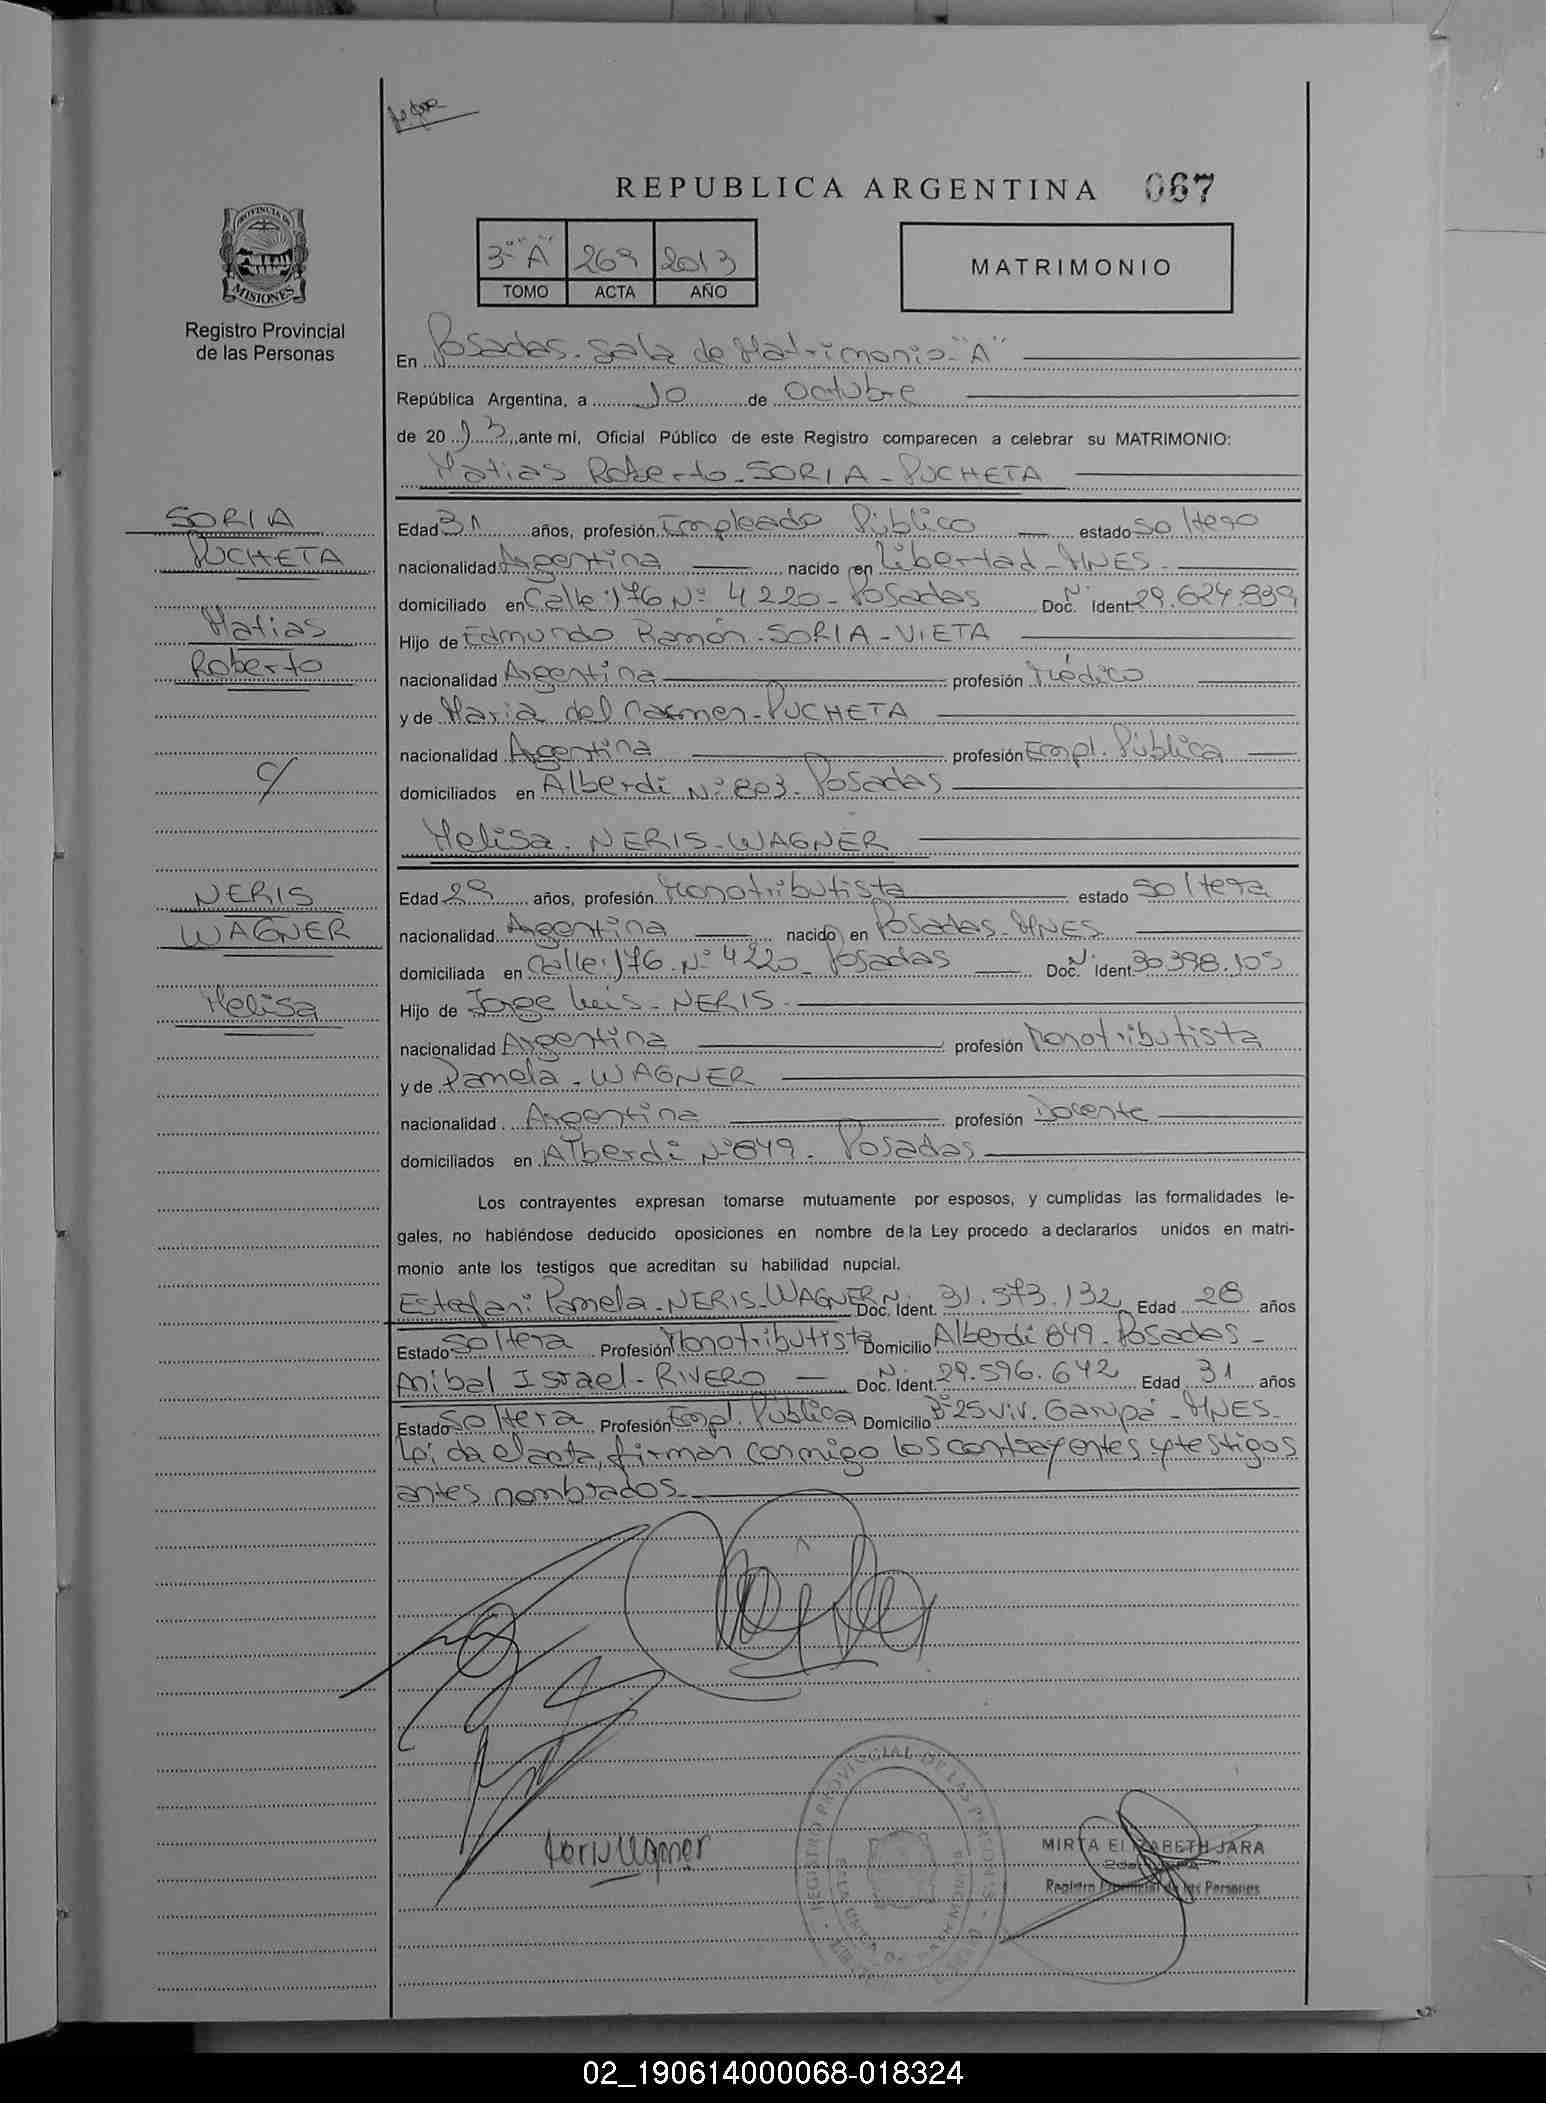 REPUBLICA ARGENTINA 067
PROVINCIA DE
MISIONES
Registro Provincial
de las Personas
3º "A" 269 2013
TOMO ACTA AÑO
MATRIMONIO
En Posadas - Sala de Matrimonio - "A"
República Argentina, a 10 de Octubre
de 2013, ante mí, Oficial Público de este Registro comparecen a celebrar su MATRIMONIO:
Matias Roberto - SORIA - PUCHETA
SORIA
PUCHETA
Matias
Roberto
c/
NERIS
WAGNER
Melisa
Edad 31 años, profesión Empleado Público estado soltero
nacionalidad Argentina nacido en Libertad - MNES -
domiciliado en Calle: 176 Nº 4220 - Posadas Doc. Nº Ident. 29.624.839
Hijo de Edmundo Ramón - SORIA - VIETA
nacionalidad Argentina profesión Médico
y de Maria del Carmen - PUCHETA
nacionalidad Argentina profesión Empl. Pública
domiciliados en Alberdi Nº 803 - Posadas
Melisa - NERIS - WAGNER
Edad 29 años, profesión Monotributista estado soltera
nacionalidad Argentina nacido en Posadas - MNES
domiciliada en Calle: 176 - Nº 4220 - Posadas Doc. Nº Ident. 30.398.105
Hijo de Jorge Luis - NERIS -
nacionalidad Argentina profesión Monotributista
y de Pamela - WAGNER
nacionalidad Argentina profesión Docente
domiciliados en Alberdi Nº 849 - Posadas
Los contrayentes expresan tomarse mutuamente por esposos, y cumplidas las formalidades le-
gales, no habiéndose deducido oposiciones en nombre de la Ley procedo a declararlos unidos en matri-
monio ante los testigos que acreditan su habilidad nupcial.
Estefani Pamela - NERIS - WAGNER Doc. Nº Ident. 31.573.132 Edad 28 años
Estado soltera Profesión Monotributista Domicilio Alberdi 849 - Posadas -
Anibal Israel - RIVERO Doc. Nº Ident. 29.596.642 Edad 31 años
Estado soltera Profesión Empl. Pública Domicilio Bº 25 Viv. Garupá - MNES -
Leída el acta, firman conmigo los contrayentes y testigos
antes nombrados -
REGISTRO PROVINCIAL DE LAS PERSONAS
MIRTA ELIZABETH JARA
Registro Provincial de las Personas
02_190614000068-018324